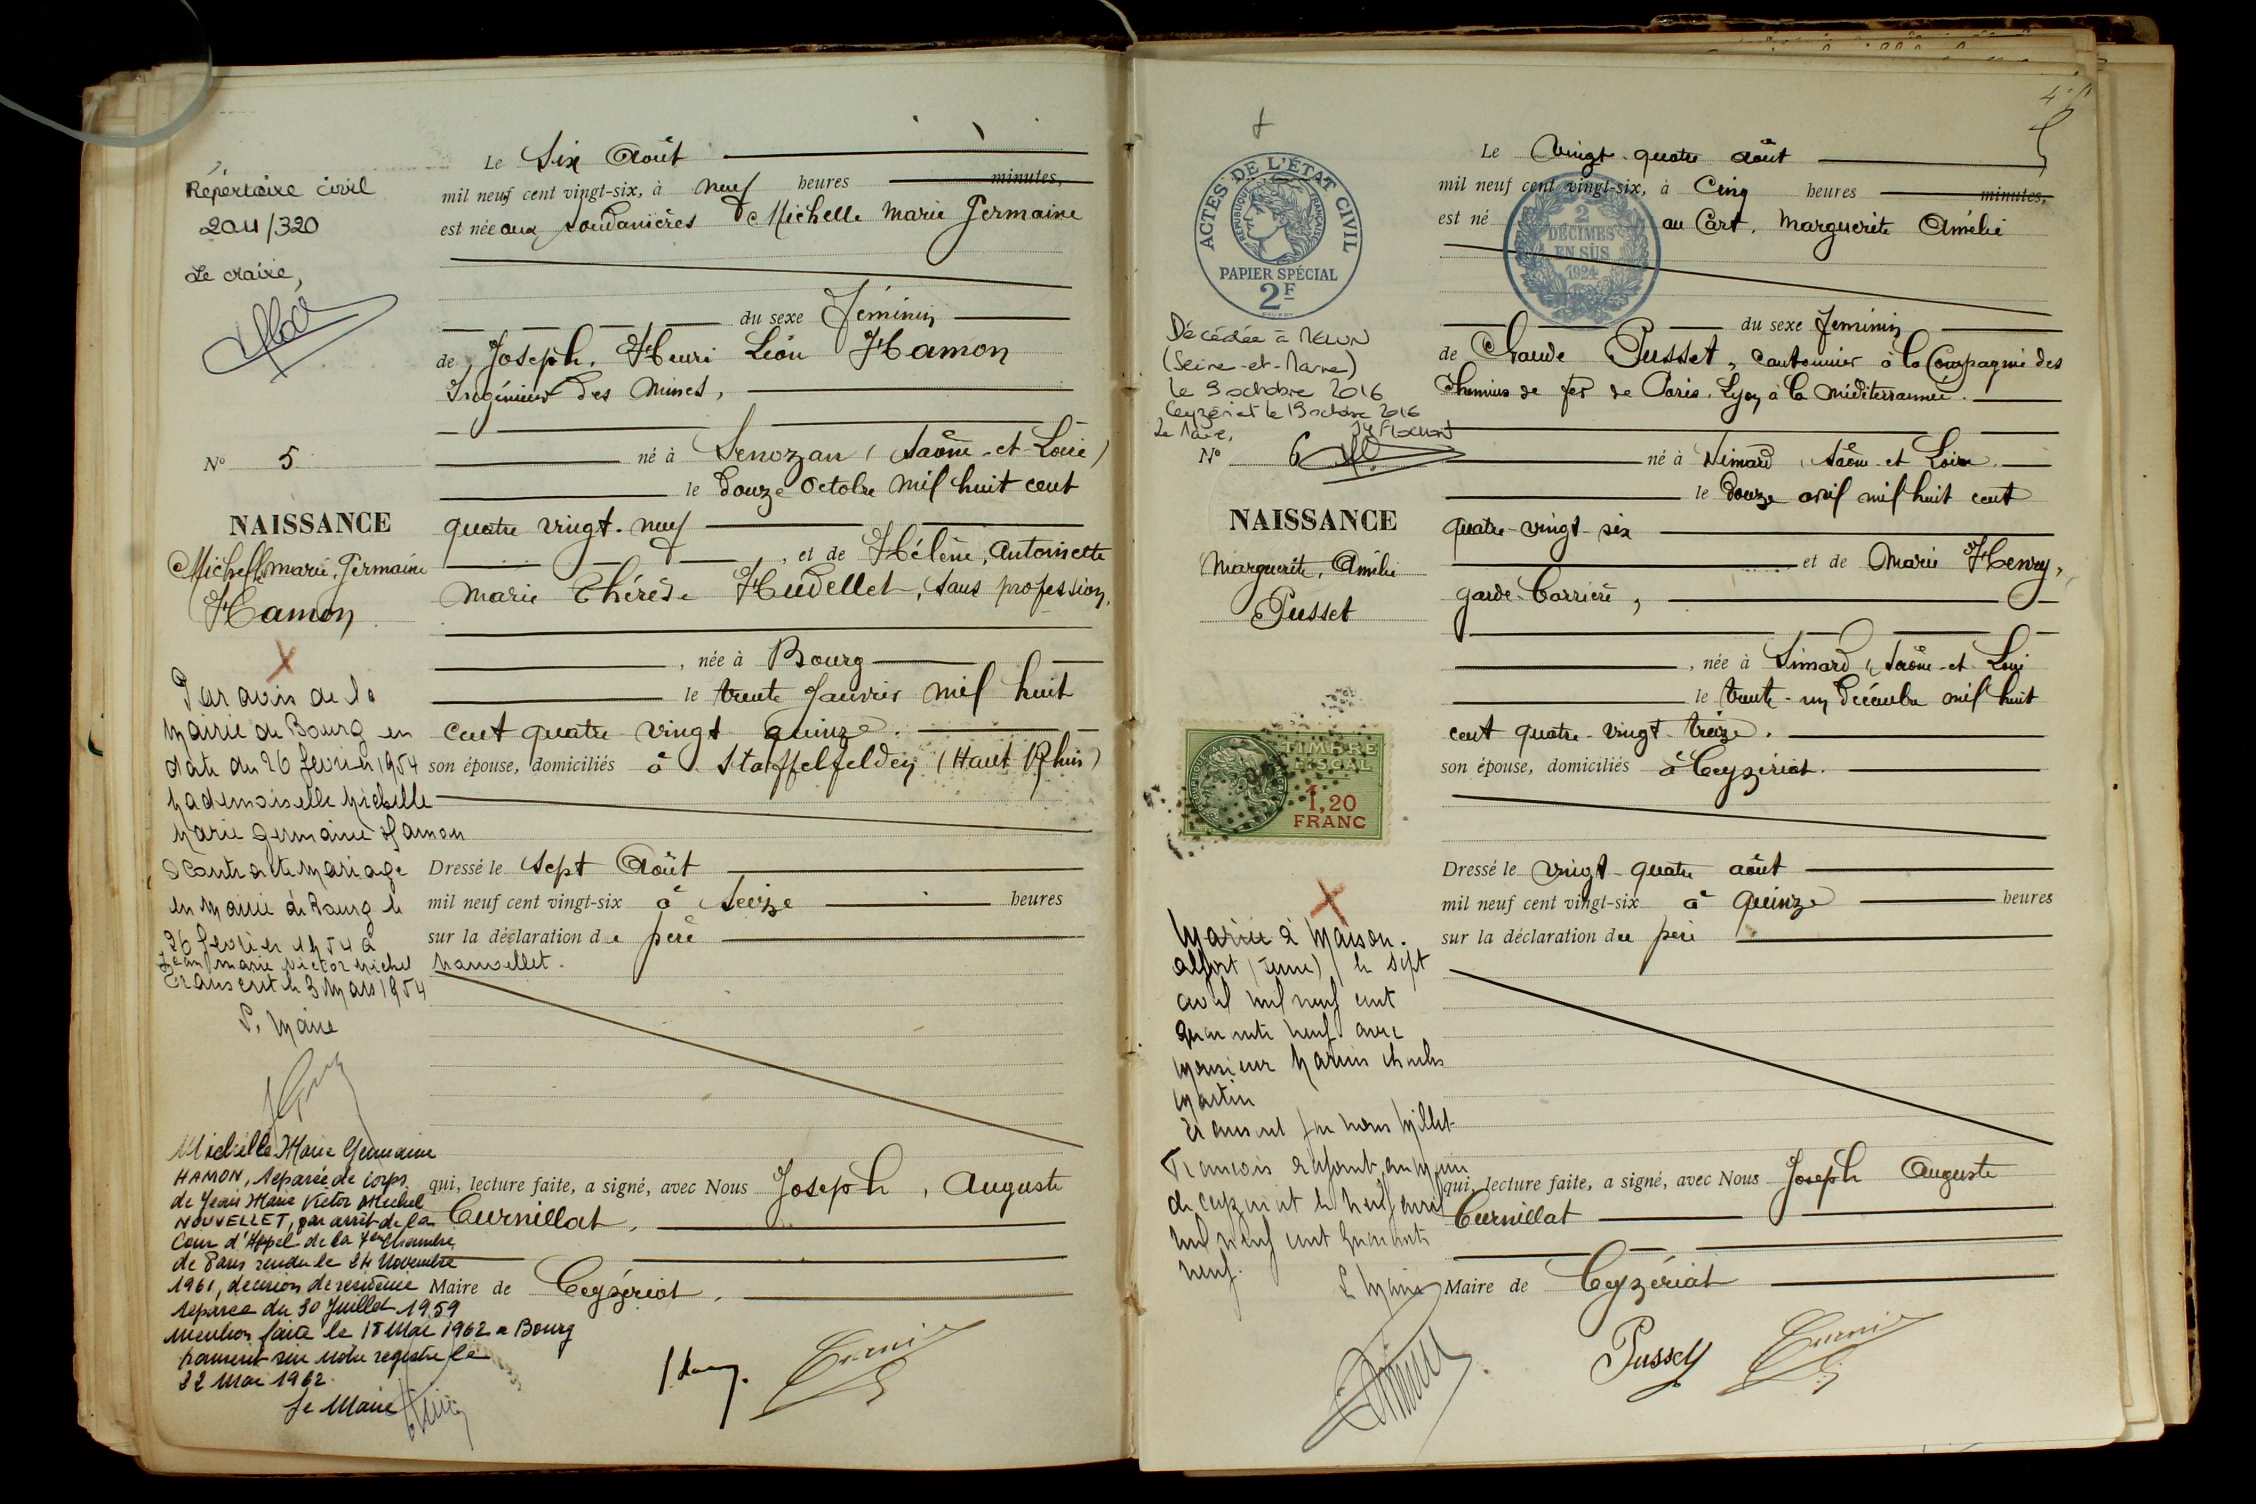 Répertoire civil
2011/320
Le Maire,
N° 5
NAISSANCE
Michelle, Marie, Germaine
Hamon
Par avis de la
Mairie de Bourg en
date du 26 février 1954
Mademoiselle Michelle
Marie Germaine Hamon
a contracté mariage
en Mairie de Bourg le
26 février 1954 à
Jean Marie Victor Michel
Nouvellet.
Transcrit le 3 Mars 1954
Le Maire
Michelle Marie Germaine
HAMON, séparée de corps
de Jean Marie Victor Michel
NOUVELLET, par arrêt de la
Cour d'Appel de la 7e Chambre
de Paris rendu le 24 Novembre
1961, décision de résidence
séparée du 30 Juillet 1959
Mention faite le 18 Mai 1962 a Bourg
sur notre registre le
22 Mai 1962
Le Maire
Le Six Août
mil neuf cent vingt-six, à neuf heures minutes,
est née aux Soudanières Michelle Marie Germaine
du sexe féminin
de Joseph, Henri Léon Hamon
Ingénieur des Mines,
né à Senozan (Saône-et-Loire)
le douze Octobre mil huit cent
quatre vingt-neuf
, et de Hélène, Antoinette
Marie Thérèse Hudellet, sans profession,
, née à Bourg
le trente Janvier mil huit
cent quatre vingt quinze.
son épouse, domiciliés à Staffelfelden (Haut Rhin)
Dressé le sept Août
mil neuf cent vingt-six à Seize heures
sur la déclaration du père
qui, lecture faite, a signé, avec Nous Joseph, Auguste
Curnillat,
Maire de Ceyzériat.
ACTES DE L'ÉTAT CIVIL
RÉPUBLIQUE FRANÇAISE
PAPIER SPÉCIAL
2F
Décédée à MELUN
(Seine-et-Marne)
le 9 octobre 2016
Ceyzériat le 19 octobre 2016
Le Maire,
N° 6
NAISSANCE
Marguerite, Amélie
Pusset
TIMBRE
FISCAL
1,20
FRANC
Mariée à Maison-
alfort (Seine) le sept
avril mil neuf cent
quarante neuf avec
Monsieur Marius Charles
Martin
Transcrit par nous Millet
François adjoint au Maire
de Ceyzériat le neuf avril
mil neuf cent quarante
neuf.
Le Maire
Le vingt-quatre août
mil neuf cent vingt-six, à Cinq heures minutes,
est né au Cart, Marguerite Amélie
2
DÉCIMES
EN SUS
1924
du sexe féminin
de Claude Pusset, cantonnier à la Compagnie des
Chemins de fer de Paris, Lyon à la Méditerranée.
né à Simard, Saône-et-Loire
le douze avril mil huit cent
quatre-vingt-six
et de Marie Henry,
garde-barrière,
, née à Simard, Saône-et-Loire
le trente-un Décembre mil huit
cent quatre-vingt-treize.
son épouse, domiciliés à Ceyzériat.
Dressé le vingt-quatre août
mil neuf cent vingt-six à quinze heures
sur la déclaration du père
qui, lecture faite, a signé, avec Nous Joseph Auguste
Curnillat
Maire de Ceyzériat
Pusset